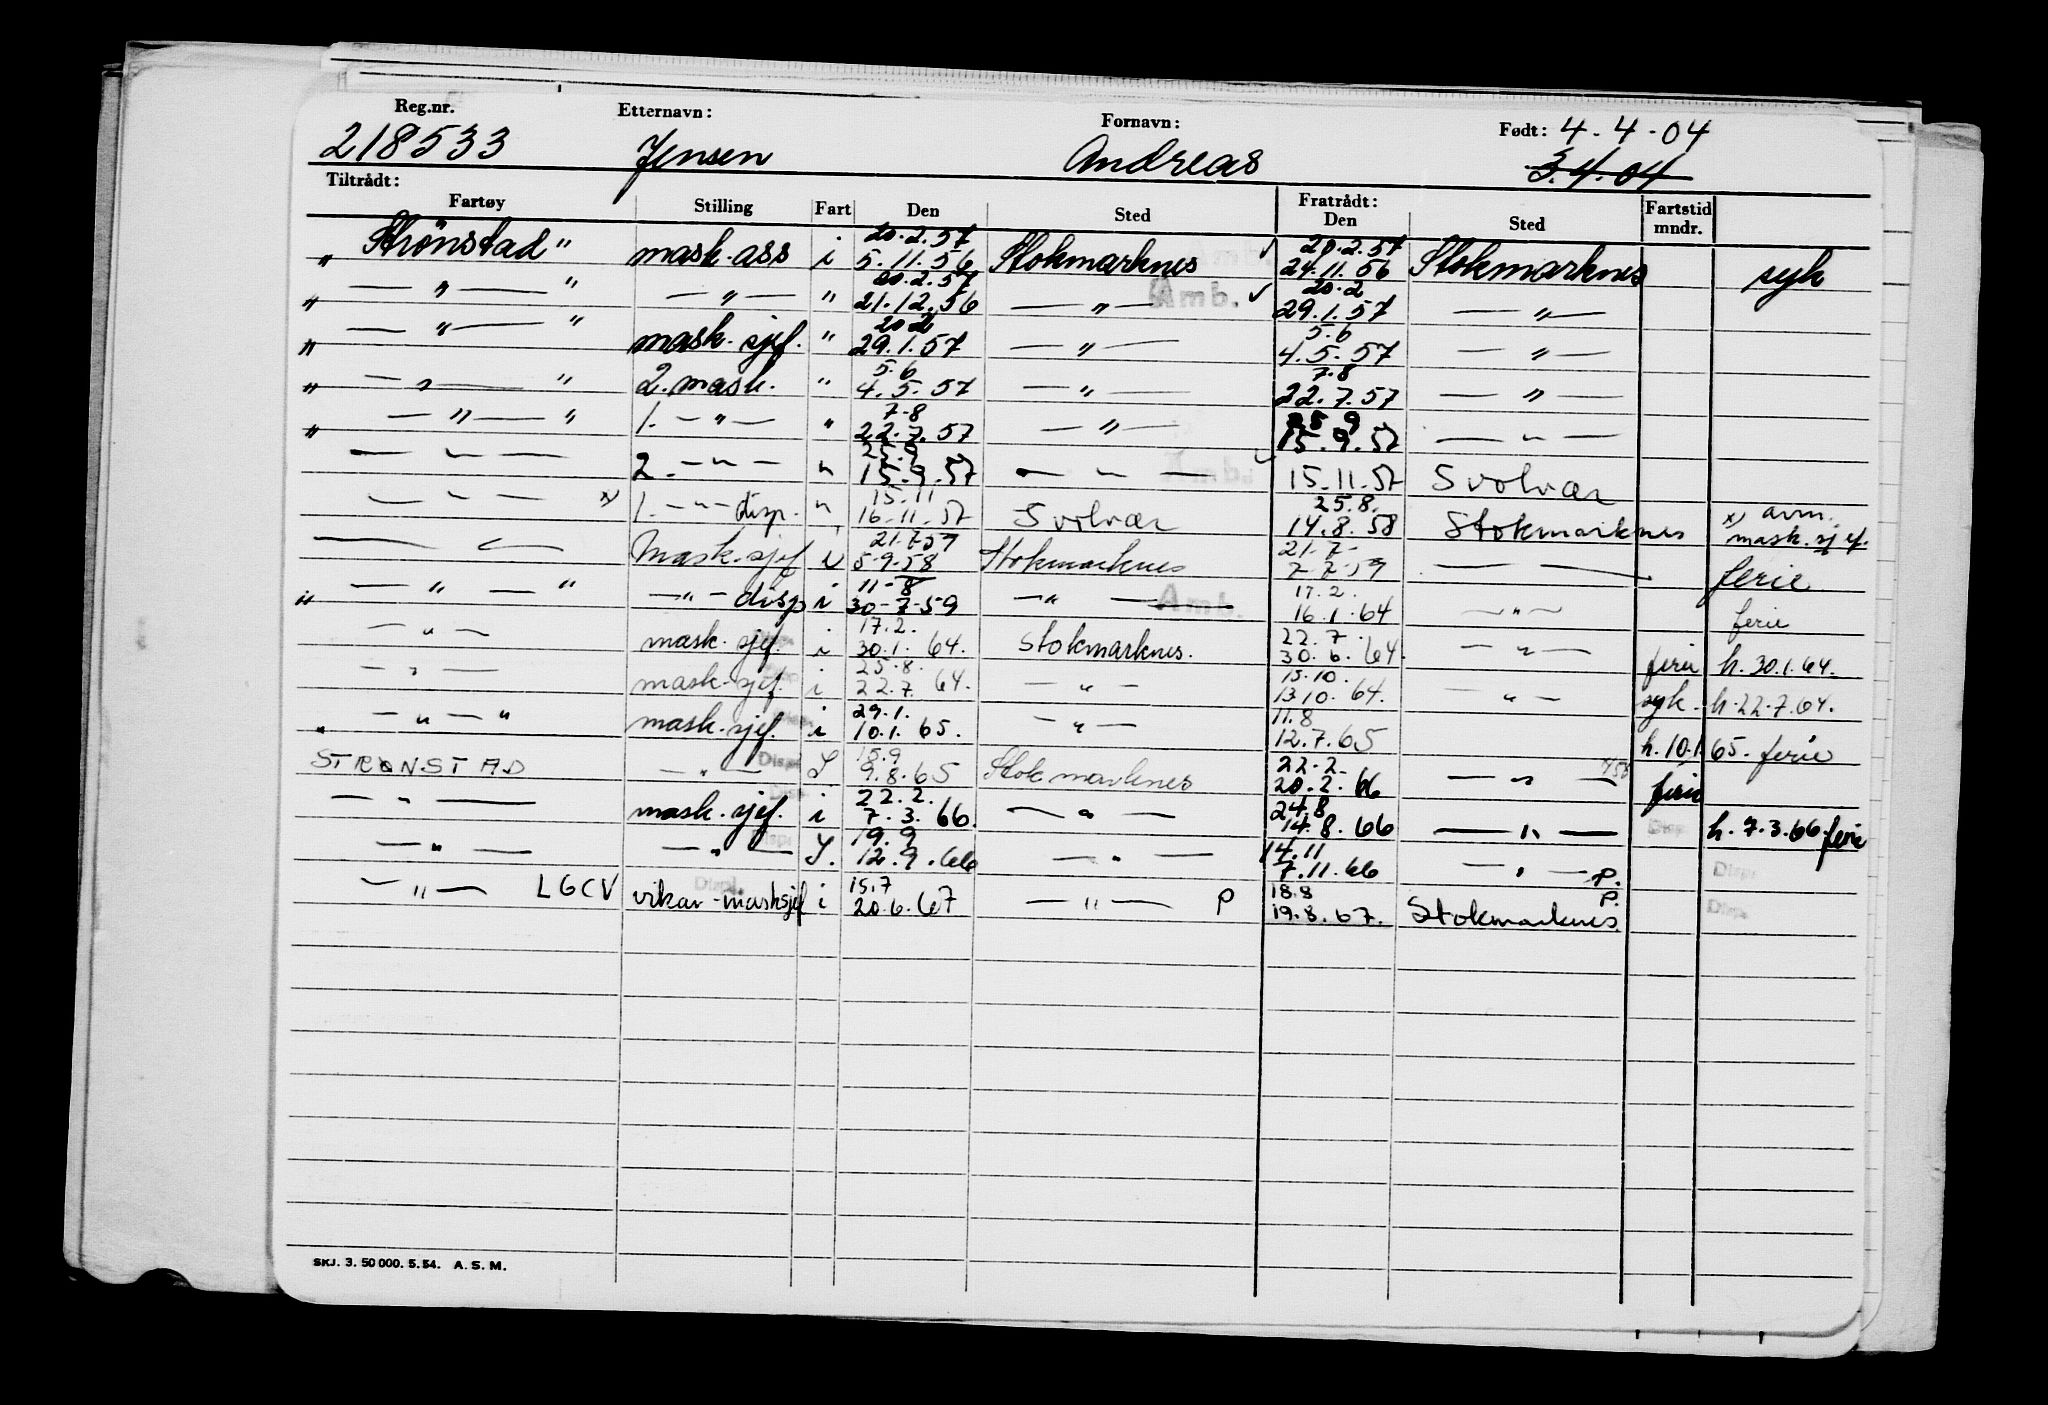 Reg.nr. Etternavn: Fornavn: Født: 4-4-04
218533 Jensen Andreas 3.4.04
Tiltrådt: Fratrådt:
Fartøy Stilling Fart Den Sted Den Sted Fartstid mndr.
20.2.57 20.2.57
„ Strönstad " mask.ass i 5.11.56 Stokmarknes ✓ 24.11.56 Stokmarknes syk
20.2.57 Amb. 20.2
„ — „ — " — „ — " 21.12.56 — „ — ✓ 29.1.57 — „ —
20.2 5.6
„ — „ — " mask.sjef. " 29.1.57 — „ — 4.5.57 — „ —
5.6 7.8
„ — „ — " 2.mask. " 4.5.57 — „ — 22.7.57 — „ —
7.8 25.9
„ — „ — " 1. — „ — " 22.7.57 — „ — 15.9.57 — „ —
25.9 Amb.
— „ — 2. — „ — " 15.9.57 — „ — 15.11.57 Svolvær
15.11 25.8.
— „ — x) 1. — „ — disp. " 16.11.57 Svolvær 14.8.58 Stokmarknes x) avm. mask.sjef.
21.7.59 21.7
— „ — Mask.sjef i 5.9.58 Stokmarknes 7.7.59 — — ferie
11-8 Amb. 17.2.
„ — „ — " — „ — disp i 30-7-59 — „ — 16.1.64 — „ — ferie
17.2. 22.7.
— „ — mask.sjef. i 30.1.64. Stokmarknes. 30.6.64. — „ — ferie h.30.1.64.
25.8. 15.10.
— „ — mask.sjef. i 22.7.64. — „ — 13.10.64. — „ — syk. h.22.7.64.
29.1. 11.8
„ — „ — " mask.sjef. i 10.1.65. — „ — 12.7.65 h.10.1.65. ferie
Disp. 15.9 22.2
STRØNSTAD — „ — 9.8.65 Stokmarknes 20.2.66 — „ — ferie
22.2. 24.8
— „ — mask.sjef. i 7.3.66. — „ — 14.8.66 — „ — Disp. h.7.3.66.ferie
Disp. 19.9 14.11
— „ — — „ — 12.9.66 — „ — 7.11.66 — „ — P. Disp.
Disp. 15.7 18.8 P.
— „ — LGCV vikar-masksjef i 20.6.67 — „ — P 19.8.67. Stokmarknes. Disp.
SKJ. 3. 50 000. 5. 54. A. S. M.